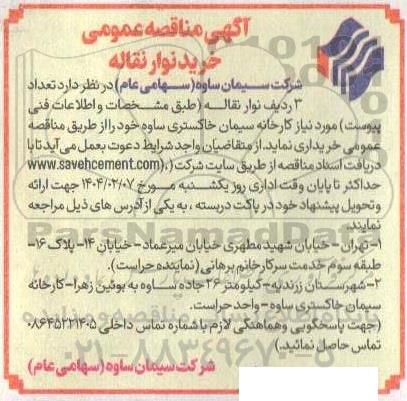 آگهی مناقصه عمومی
خرید نوار نقاله
شرکت سیمان ساوه (سهامی عام) در نظر دارد تعداد
۳ ردیف نوار نقاله (طبق مشخصات و اطلاعات فنی
پیوست) مورد نیاز کارخانه سیمان خاکستری ساوه خود را از طریق مناقصه
عمومی خریداری نماید. از متقاضیان واجد شرایط دعوت بعمل می‌آید تا با
دریافت اسناد مناقصه از طریق سایت شرکت (www.savehcement.com)،
حداکثر تا پایان وقت اداری روز یکشنبه مورخ ۱۴۰۴/۰۲/۰۷ جهت ارائه
و تحویل پیشنهاد خود در پاکت دربسته، به یکی از آدرس های ذیل مراجعه
نمایند.
۱- تهران - خیابان شهید مطهری خیابان میرعماد - خیابان ۱۴- پلاک ۱۶-
طبقه سوم خدمت سرکار خانم برهانی (نماینده حراست).
۲- شهرستان زرندیه- کیلومتر ۲۶ جاده ساوه به بوئین زهرا- کارخانه
سیمان خاکستری ساوه - واحد حراست.
(جهت پاسخگویی و هماهنگی لازم با شماره تماس داخلی ۰۸۶۴۵۲۲۱۴۰۵
تماس حاصل نمائید.)
شرکت سیمان ساوه (سهامی عام)
ParsNamadData
۰۲۱-۸۸۳۴۹۶۷۰-۵